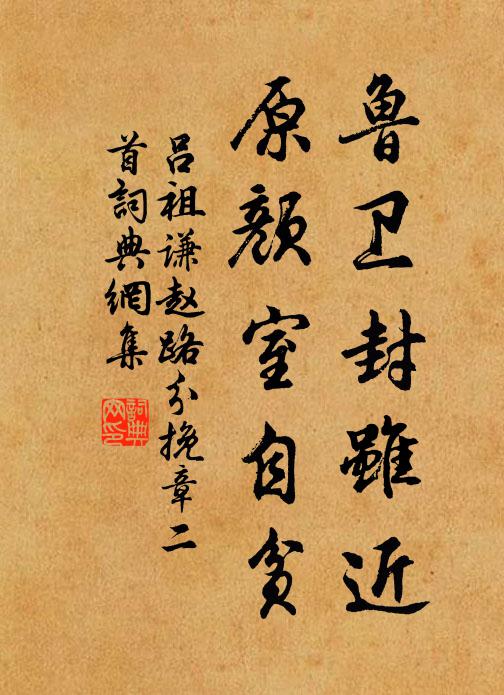 鲁卫封雖近
原颜室自贫
吕祖谦赵路分挽章二
首詞典網集
詞典
网印